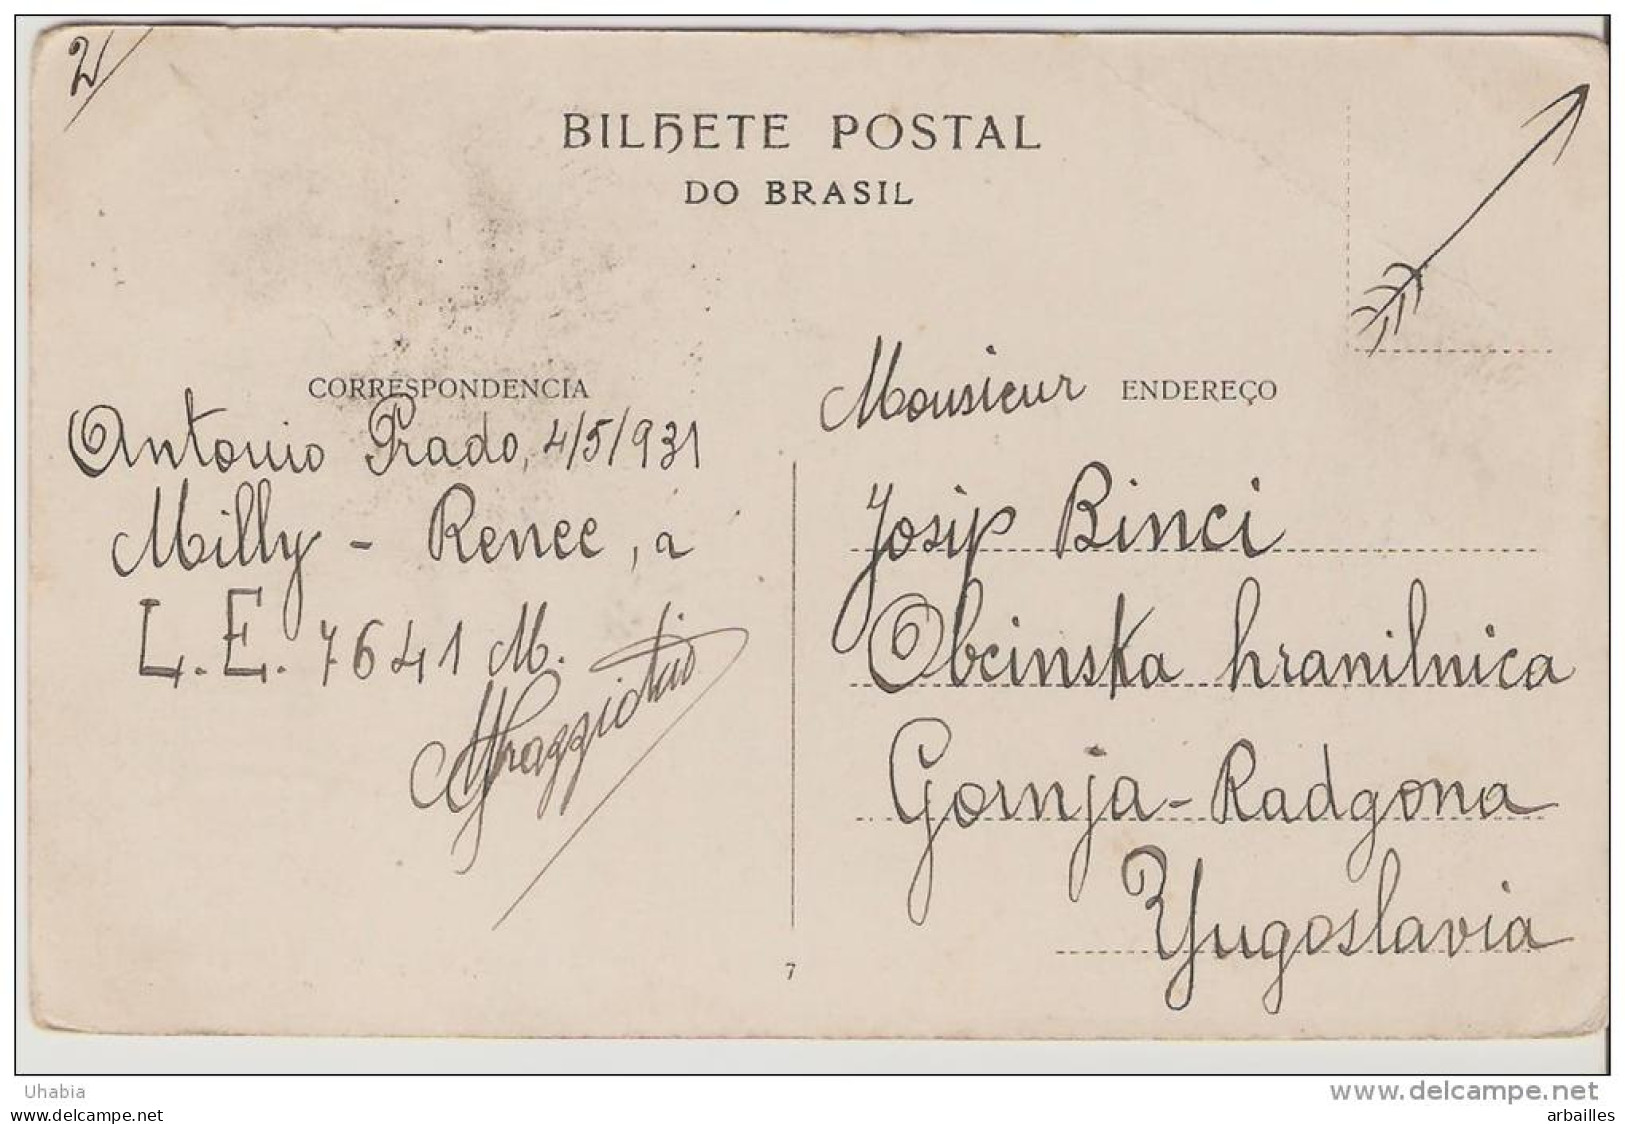 2
BILHETE POSTAL
DO BRASIL
CORRESPONDENCIA
Antonio Prado, 4/5/931
Milly - Renee, a
L.E. 7641 M.
Monsieur ENDEREÇO
Josip Binci
Obcinska hranilnica
Gornja-Radgona
Yugoslavia
7
Uhabia
www.delcampe.net
www.delcampe.net
arbailles